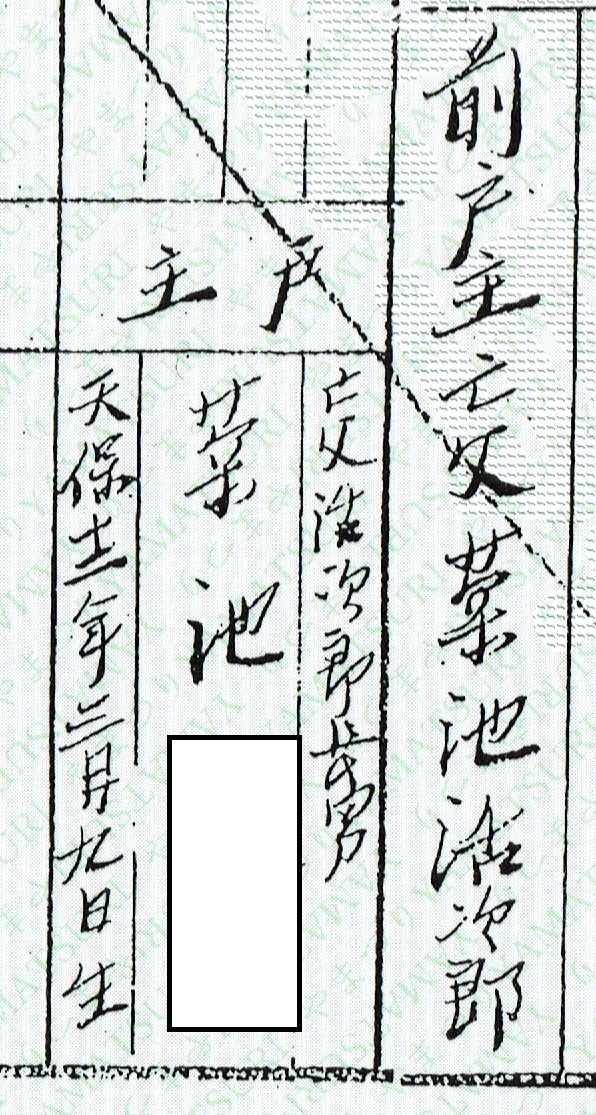 前戸主亡父菊池浩次郎
戸主
亡父浩次郎長男
菊池
天保十二年三月九日生